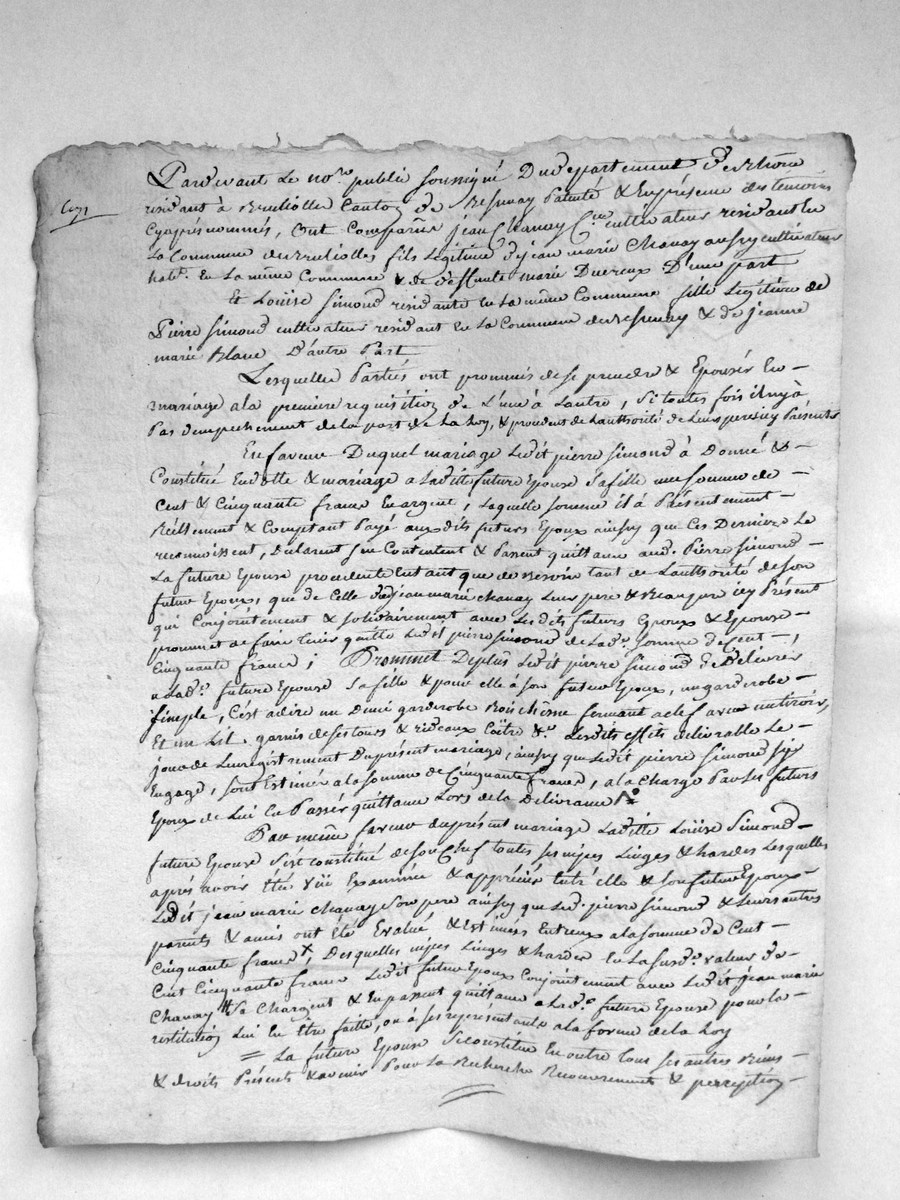 Pardevant Le no.re public soussigné Dudepartement de Rhône
residant à Brulliolle Canton de Bessenay Patenté & En présence des temoins
Cyaprès nommés, Ont Comparus jean Chanay C.en cultivateur residant En
La Commune de Brulliolles fils Légitime de jean marie Chanay aussy cultivateur
hab.t En La même Commune & de deffunte marie Ducreux D'une part
Et Loüise Simond residante En La même Commune fille Legitime de
Pierre Simond cultivateur residant En La Commune de Bessenay & de jeanne
marie Blanc D'autre Part
Lesquelles Parties ont prommis de se prendre & Epousér En
mariage a la premiere requisition de L'une à Lautre, Si toutes fois il ny à
Pas d'empechement de la part de La Loy, & procédent de Lauthorité de Leurs peres icy Présents
En faveur Duquel mariage Ledit pierre Simond à Donné &
Constitué En dotte & mariage a Laditte future Epouse Sa fille une somme de
Cent & Cinquante francs En argent, Laquelle somme il à Présentement
Réellement & Comptant Payé aux dits futurs Epoux ainsy que Ces Derniers Le
reconnoissent, Déclarent s'en Contentent & Passent quittance aud. Pierre Simond
La future Epouse procedente Entant que de besoin tant de Lauthorité de son
futur Epoux, que de Celle dudit jean marie Chanay Leur pere & Beaupere icy Présent
qui Conjointement & Solidairement avec Lesdits futurs Epoux & Epouse
prommet de faire tenir quitte Ledit pierre Simond de Lad.e Somme de Cent
Cinquante francs; Prommet Deplus Ledit pierre Simond de Délivrer
a Lad.e future Epouse Sa fille & pour elle à son futur Epoux, un garderobe
Simple, C'est adire un Demi garderobe Bois Chêne fermant a clef avec un tiroir,
Et un Lit garni de ses tours & rideaux Coëtre &.a Lesdits effets délivrable Le
jour de Lenregistrement Duprésent mariage, ainsy que Ledit pierre Simond s'y
Engage, sont Estimés a la somme de Cinquante francs, a la Charge Par Les futurs
Epoux de Lui En Passér quittance Lors de la Délivrance
Par même faveur duprésent mariage Laditte Loüise Simond
future Epouse S'est constitué de son Chef toutes ses nipes Linges & hardes Lesquelles
après avoir Eté vüe Examinée & appréciés Entr'elle & son futur Epoux
Ledit jean marie Chanay Son pere ainsy que Led. pierre Simond & Leurs autres
parents & amis ont été Evalué & Estimées Entreux a la somme de Cent
Cinquante francs, Desquelles nipes Linges & hardes En La susd.e valeur de
Cent Cinquante francs Ledit futur Epoux Conjointement avec Ledit jean marie
Chanay Se Chargent & En passent quittance a Lad.e future Epouse pour la
restitution Lui En être faitte, ou à ses representants a la forme de la Loy
= La future Epouse Se constitue En outre tous ses autres Biens
& droits Présents & avenir Pour La Recherche Recouvrement & perception